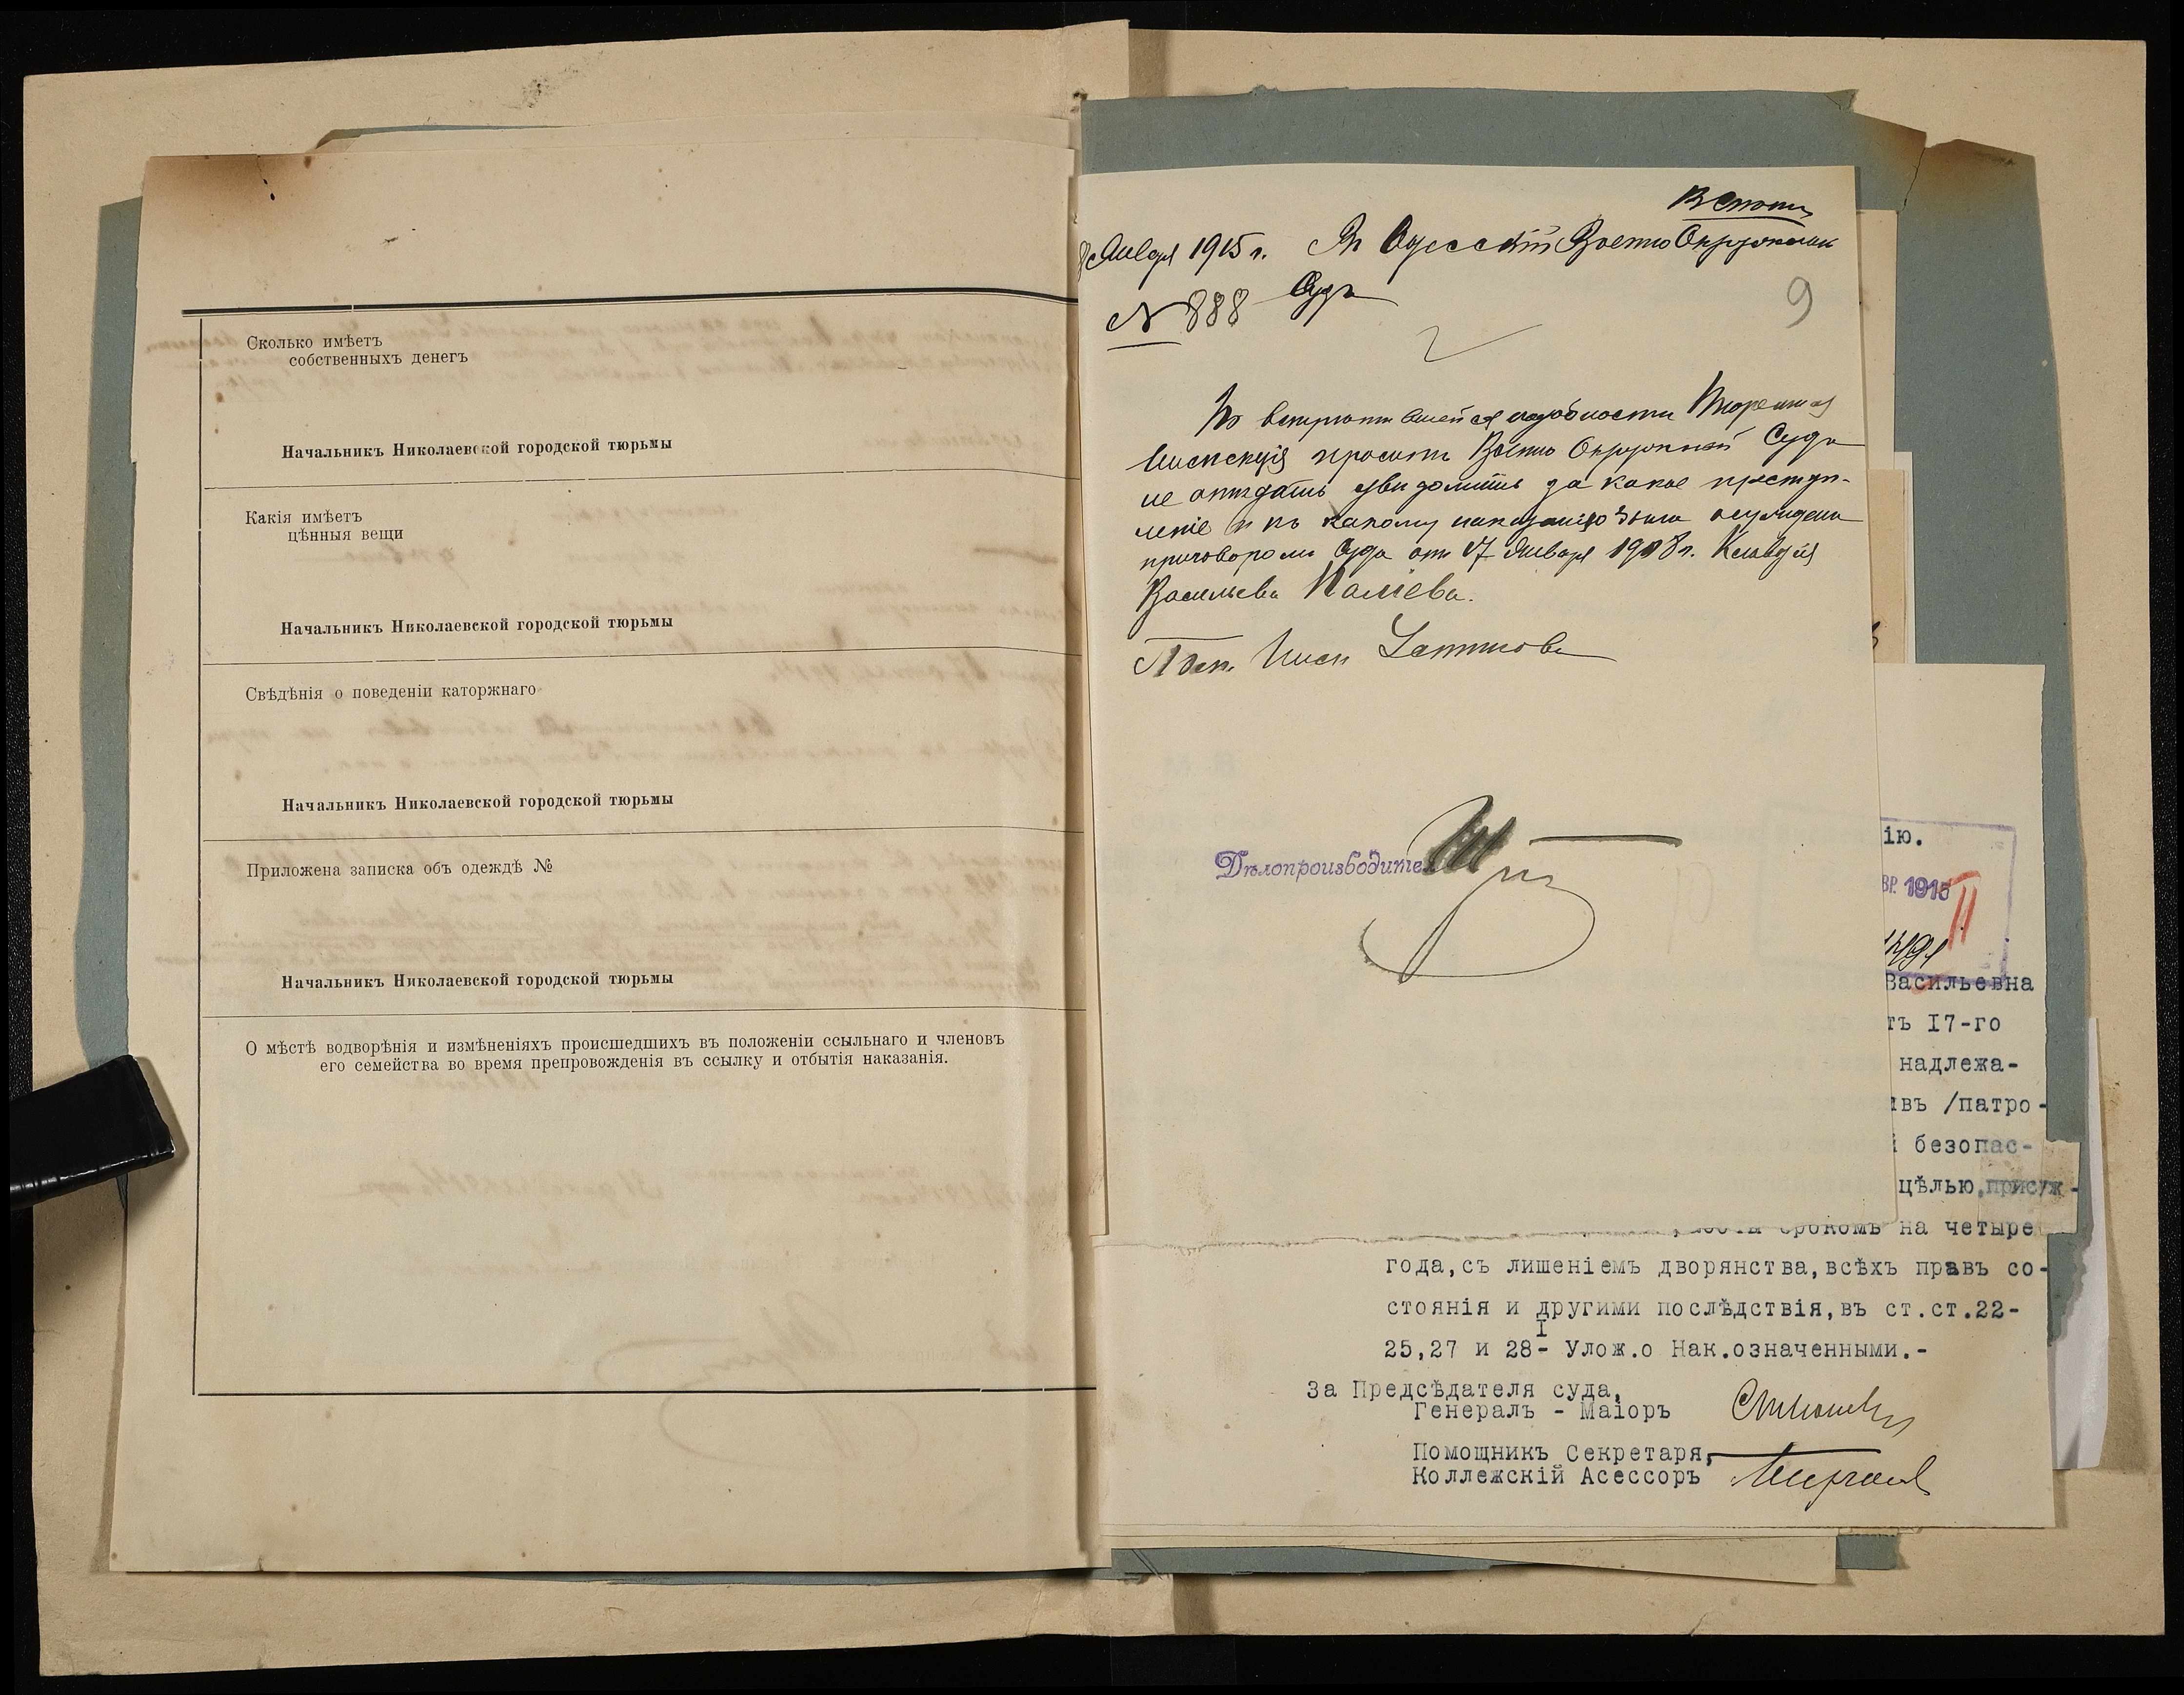 Сколько имѣетъ
собственныхъ денегъ
Начальникъ Николаевской городской тюрьмы
Какія имѣетъ
цѣнныя вещи
Начальникъ Николаевской городской тюрьмы
Свѣдѣнія о поведеніи каторжнаго
Начальникъ Николаевской городской тюрьмы
Приложена записка объ одеждѣ №
Начальникъ Николаевской городской тюрьмы
О мѣстѣ водворѣнія и измѣненіяхъ происшедшихъ въ положеніи ссыльнаго и членовъ
его семейства во время препровожденія въ ссылку и отбытія наказанія.
Января 1915 г. Въ Одесскій Военно Окружный
Судъ
№ 888
9
По встрѣтившейся надобности Тюремная
Инспекція проситъ Военно Окружный Судъ
не отказать увѣдомить за какое преступ-
леніе и къ какому наказанію была осуждена
приговоромъ Суда отъ 17 Января 1908 г. Клавдія
Васильева
Инсп
Дѣлопроизводите
ію.
ВР. 1915
II
Васильевна
тъ 17-го
надлежа-
ивъ /патро-
й безопас-
цѣлью, присуж-
срокомъ на четыре
года, съ лишеніемъ дворянства, всѣхъ правъ со-
стоянія и другими послѣдствія, въ ст.ст.22-
25,27 и 28-I Улож.о Нак.означенными.-
За Предсѣдателя суда,
Генералъ - Маіоръ
Помощникъ Секретаря,
Коллежскій Асессоръ